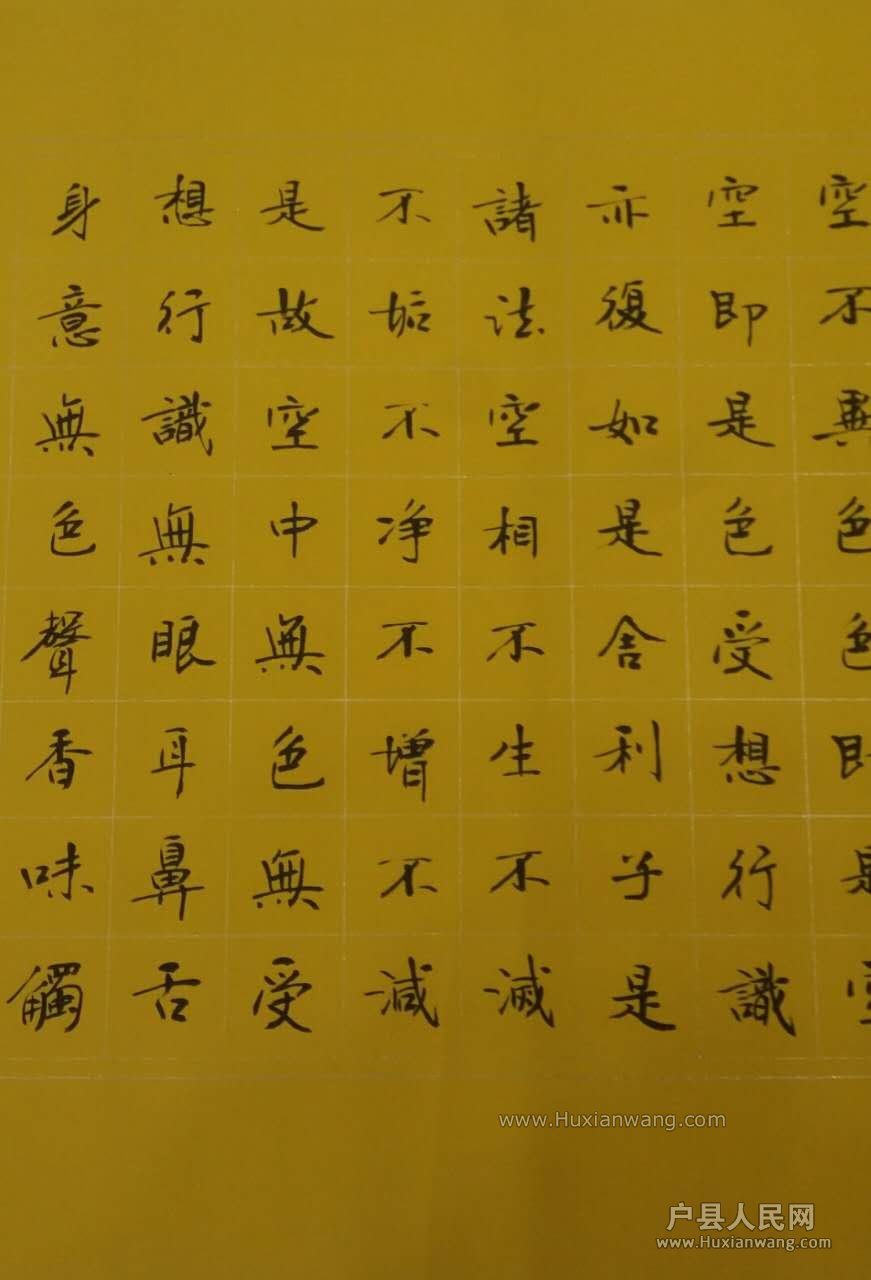 空不異色色即是空
空即是色受想行識
亦復如是舍利子是
諸法空相不生不滅
不垢不净不增不減
是故空中無色無受
想行識無眼耳鼻舌
身意無色聲香味觸
www.Huxianwang.com
户县人民网
www.Huxianwang.com